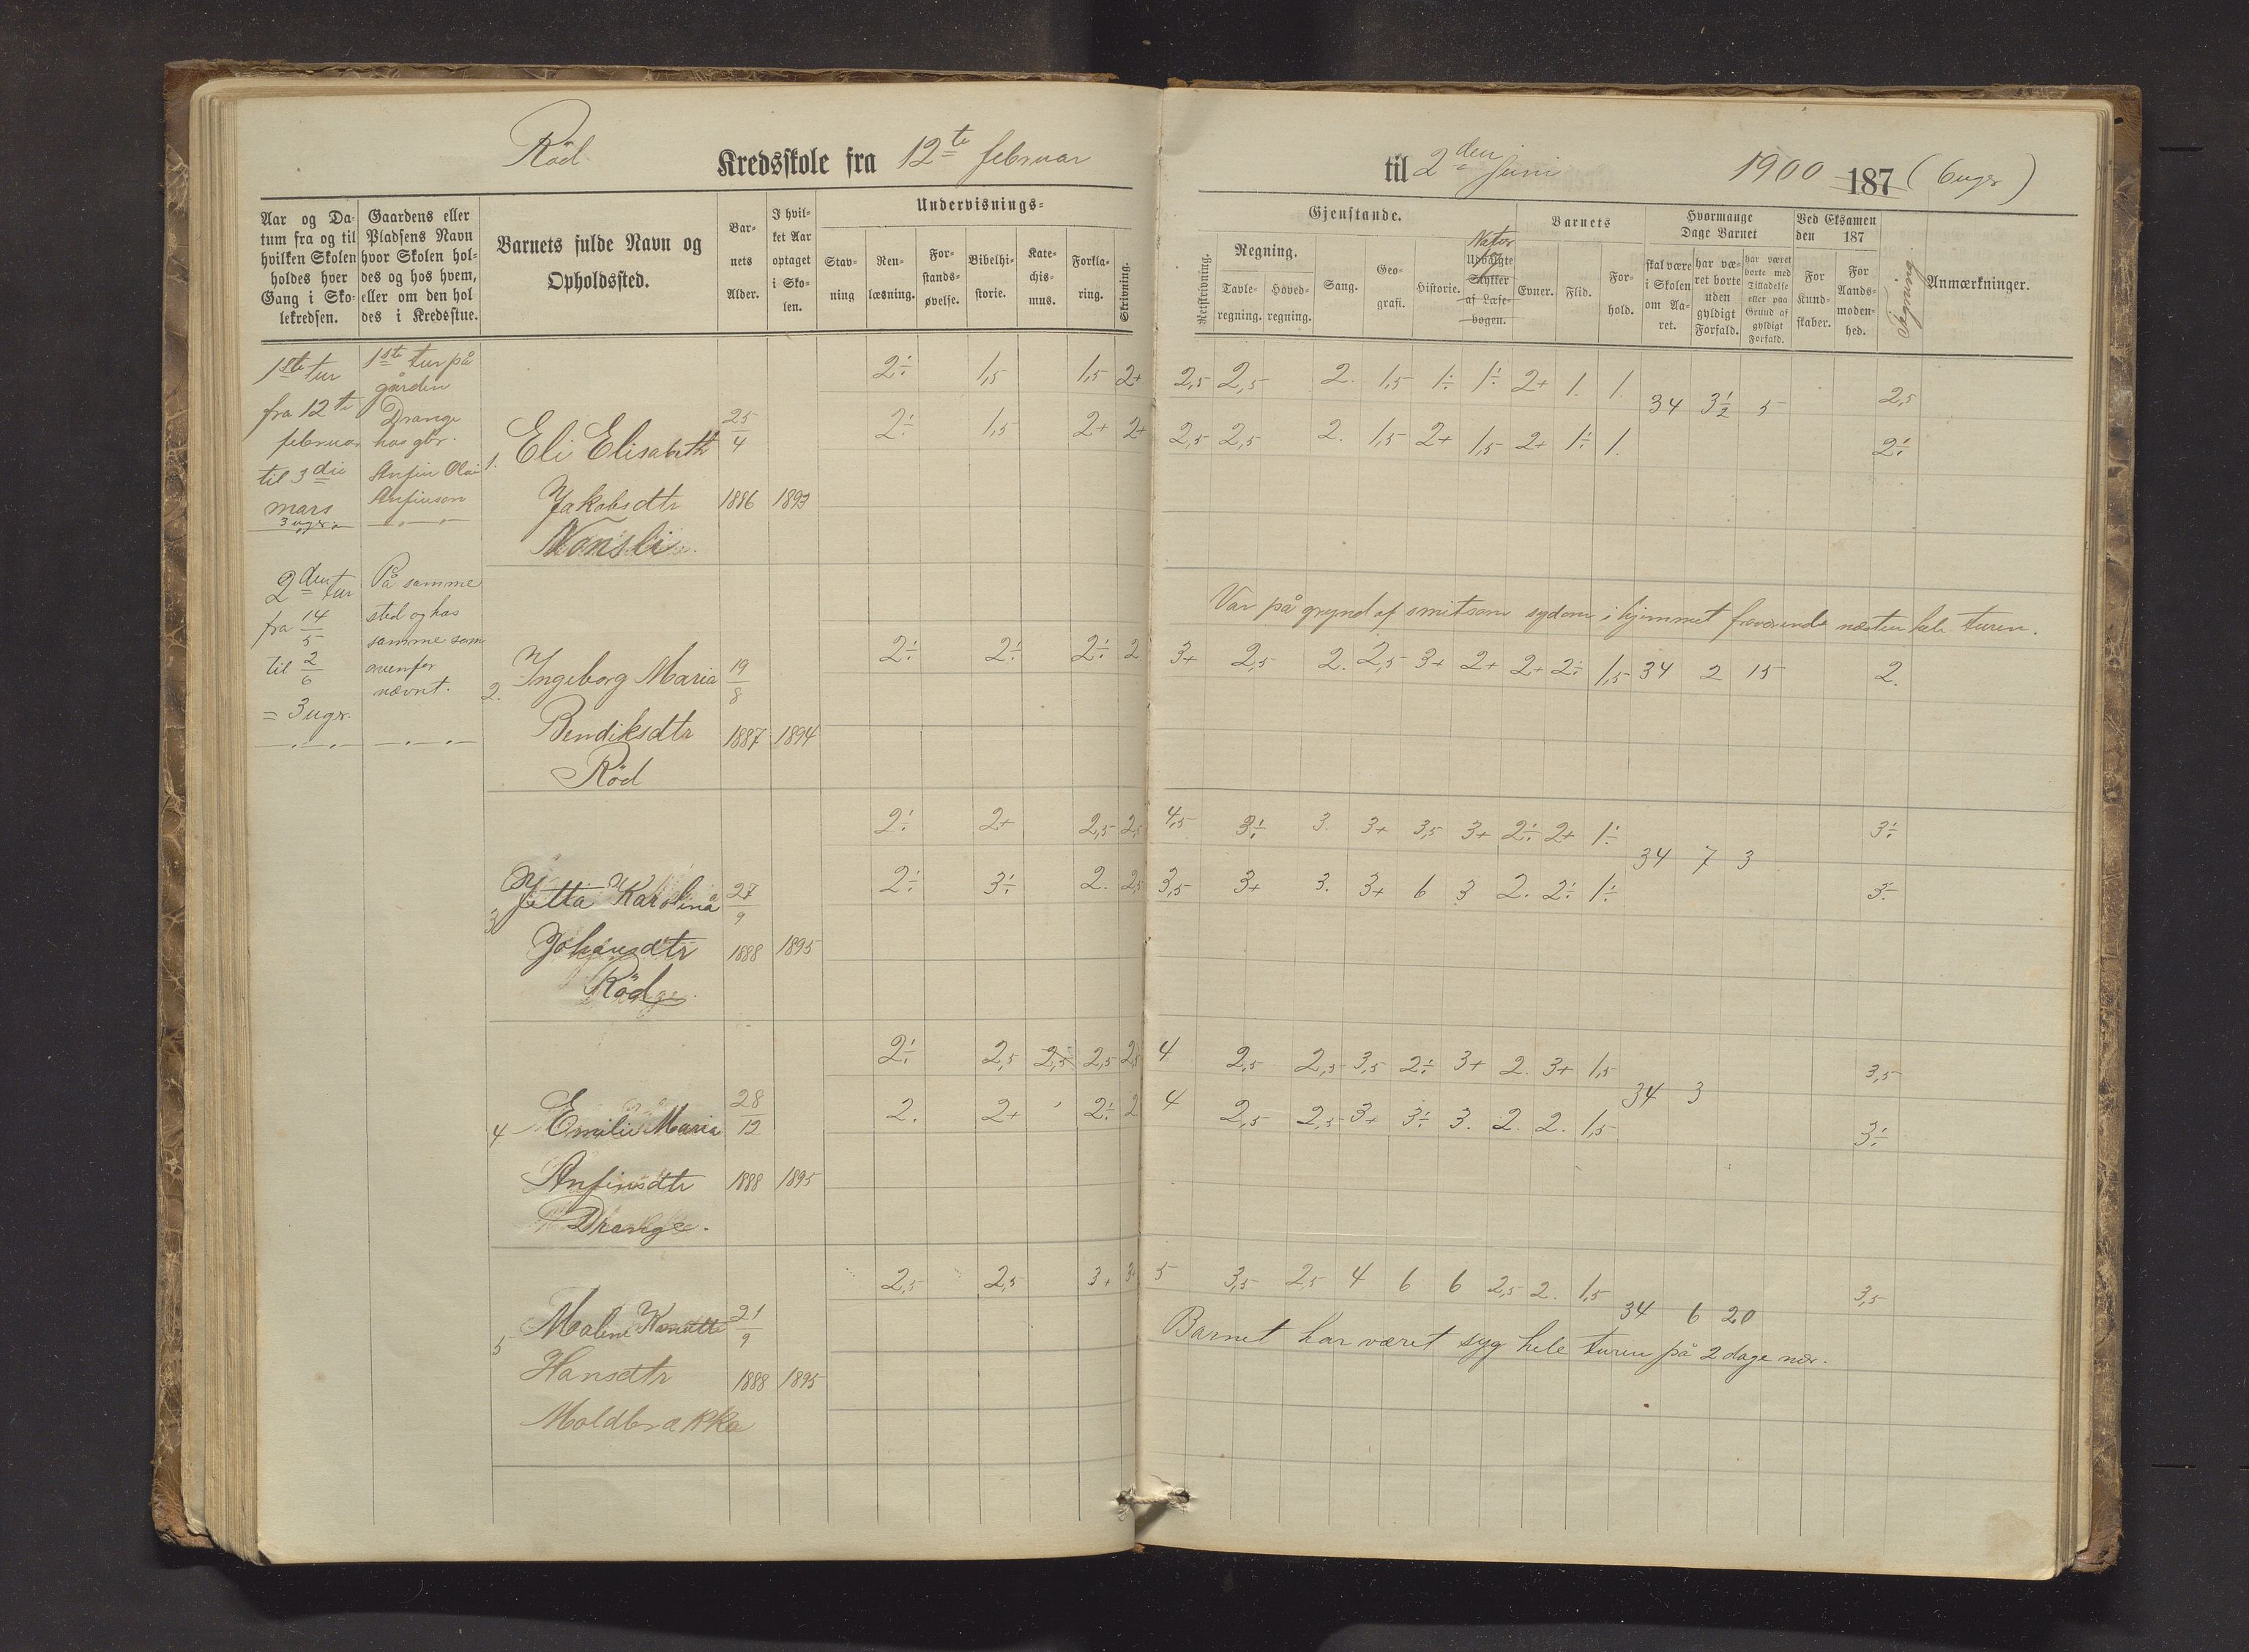 Röd Kredsskole fra 12te februar til 2den Juni 1900 187 (6 ugr)
Aar og Da-
tum fra og til
hvilken Skolen
holdes hver
Gang i Sko-
lekredsen.
Gaardens eller
Pladsens Navn
hvor Skolen hol-
des og hos hvem,
eller om den hol
des i Kredsstue.
Barnets fulde Navn og
Opholdssted.
Bar-
nets
Alder.
I hvil-
ket Aar
optaget
i Sko-
len.
Undervisnings-
Stav-
ning
Ren-
læsning.
For-
stands-
øvelse.
Bibelhi-
storie.
Kate-
chis-
mus.
Forkla-
ring.
Skrivning.
Gjenstande.
Retskrivning.
Regning.
Tavle-
regning.
Hoved-
regning.
Sang.
Geo-
grafi.
Historie.
Natur
Udvalgte
Stykker
af Læse-
bogen.
Barnets
Evner.
Flid.
For-
hold.
Hvormange
Dage Barnet
skal være
i Skolen
om Aa-
ret.
har væ-
ret borte
uden
gyldigt
Forfald.
har været
borte med
Tilladelse
eller paa
Grund af
gyldigt
Forfald.
Ved Eksamen
den 187
For
Kund-
skaber.
For
Aands-
moden-
hed.
Tegning
Anmærkninger.
1ste tur
fra 12te
februar
til 3die
mars
3 ugr.
1ste tur på
gården
Drange
hos gbr.
Anfin Olai
Anfinson
2den tur
fra 14/5
til 2/6
= 3 ugr.
På samme
sted og hos
samme som
ovenfor
nævnt.
2÷ 1,5 1,5 2+ 2,5 2,5 2. 1,5 1÷ 1÷ 2+ 1. 1. 34 3½ 5 2,5
1. Eli Elisabeth 25/4 2÷ 1,5 2+ 2+ 2,5 2,5 2. 1,5 2+ 1,5 2+ 1÷ 1. 2÷
Jakobsdtr 1886 1893
Nonsli
Var på grund af smitsom sydom i hjemmet fraværende næsten hele turen.
2÷ 2÷ 2÷ 2. 3+ 2,5 2. 2,5 3+ 2+ 2+ 2÷ 1,5 34 2 15 2.
2. Ingeborg Maria 19/8
Bendiksdtr 1887 1894
Röd
2÷ 2+ 2,5 2,5 4,5 3÷ 3. 3+ 3,5 3+ 2÷ 2+ 1÷ 34 7 3 3÷
3 Jetta Karolina 27/9 2÷ 3÷ 2. 2,5 3,5 3+ 3. 3+ 6 3 2. 2÷ 1÷ 3÷
Johansdtr 1888 1895
Röd
2÷ 2,5 2,5 2,5 2,5 4 2,5 2,5 3,5 2÷ 3+ 2. 3+ 1,5 34 3 3,5
4 Emilie Maria 28/12 2. 2+ 2÷ 2 4 2,5 2,5 3+ 3÷ 3. 2. 2. 1,5 3÷
Anfinsdtr 1888 1895
Drange.
2,5 2,5 3+ 3+ 5 3,5 2,5 4 6 6 2,5 2. 1,5 34 6 20 3,5
5 Malene 21/9
Barnet har været syg hele turen på 2 dage nær.
Hansdtr 1888 1895
Moldbrækka